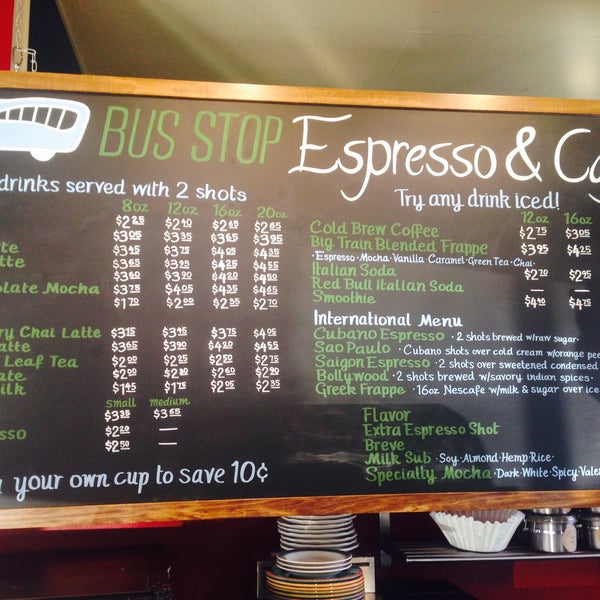 BUS STOP Espresso & Ca
drinks served with 2 shots
8oz 12oz 16oz 20oz
$2.25 $2.40 $2.65 $2.65
$3.05 $3.35 $3.65 $3.95
tte $3.45 $3.75 $4.05 $4.35
tte $3.65 $3.95 $4.25 $4.55
$3.60 $3.90 $4.20 $4.50
olate Mocha $3.75 $4.05 $4.35 $4.65
$1.70 $2.00 $2.35 $2.70
ry Chai Latte $3.15 $3.45 $3.75 $4.05
atte $3.60 $3.90 $4.20 $4.55
Leaf Tea $2.00 $2.25 $2.50 $2.75
ate $2.00 $2.30 $2.60 $2.90
ilk $1.45 $1.75 $2.05 $2.35
small medium
$3.35 $3.65
sso $2.20 —
$2.50 —
your own cup to save 10¢
Try any drink iced!
12oz 16oz
Cold Brew Coffee $2.75 $3.05
Big Train Blended Frappe $3.95 $4.25
·Espresso·Mocha·Vanilla·Caramel·Green Tea·Chai·
Italian Soda $2.70 $2.95
Red Bull Italian Soda —
Smoothie $4.40 $4.75
International Menu
Cubano Espresso · 2 shots brewed w/raw sugar·
Sao Paulo · Cubano shots over cold cream w/orange pee
Saigon Espresso · 2 shots over sweetened condensed
Bollywood · 2 shots brewed w/savory indian spices·
Greek Frappe · 16oz Nescafe w/milk & sugar over ice
Flavor
Extra Espresso Shot
Breve
Milk Sub ·Soy·Almond·Hemp·Rice·
Specialty Mocha ·Dark·White·Spicy·Valen